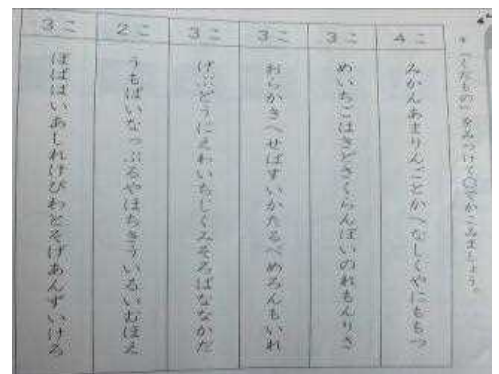 * 「くだもの」をみつけて○でかこみましょう。
4こ
みかんあまりんごとかへなしくやにももつ
3こ
めいちごはきどさくらんぼいのれもんりさ
3こ
おらかきへせばすいかたるべめろんもいれ
3こ
けぶどうにえわいちじくみそろばななかだ
2こ
うもぱいなっぷるやほちきういるいむほえ
3こ
ぽぱぱいあしれけびわとをげあんずいけろ